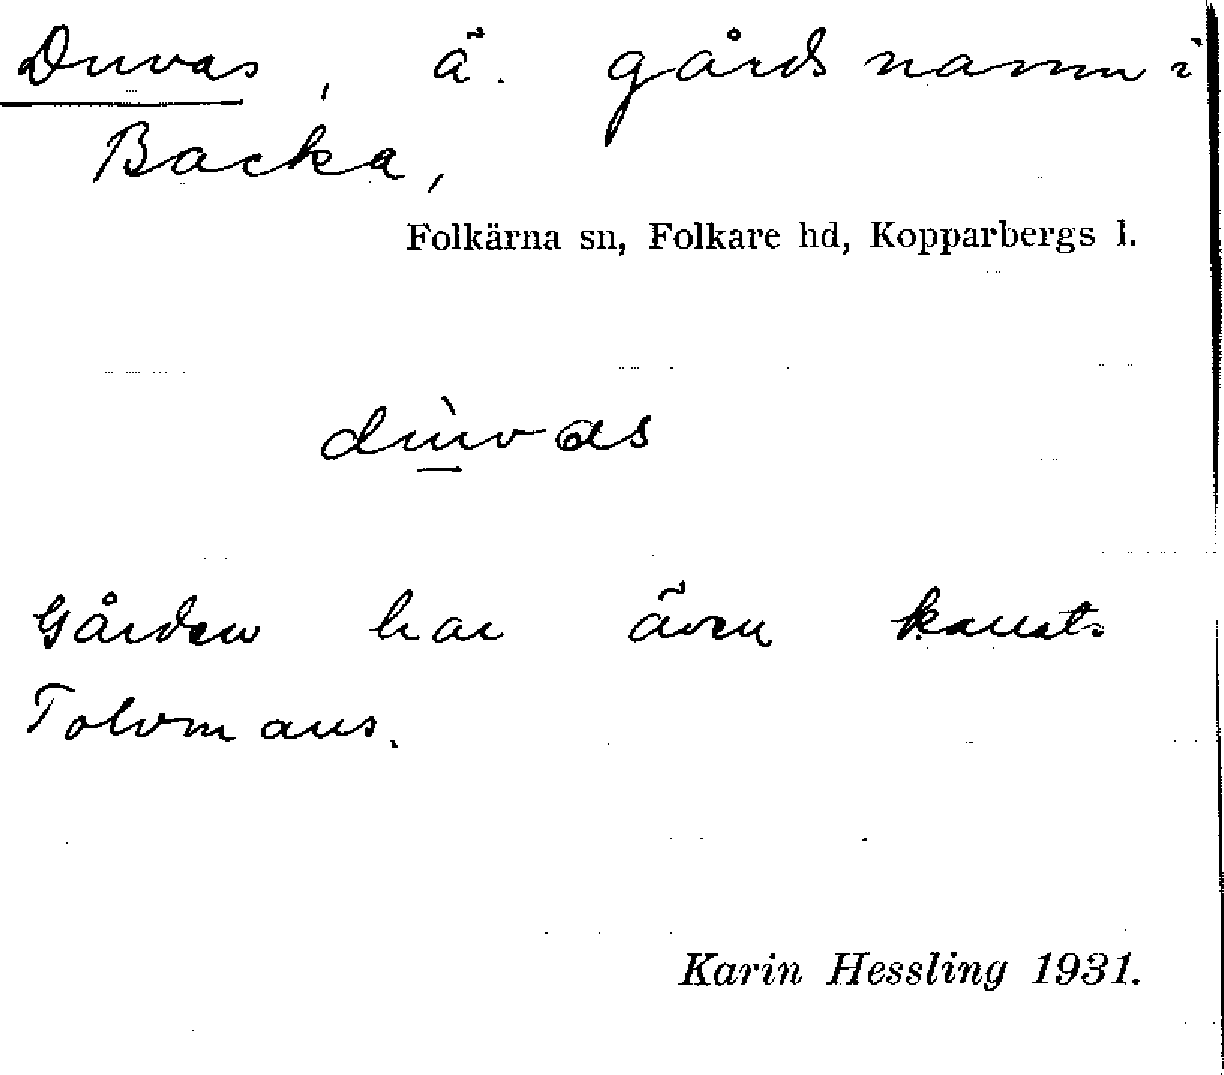 Duvas, ä. gårdsnamn i
Backa,
Folkärna sn, Folkare hd, Kopparbergs l.
dùvas
Gården har även kallats
Tolvmans.
Karin Hessling 1931.